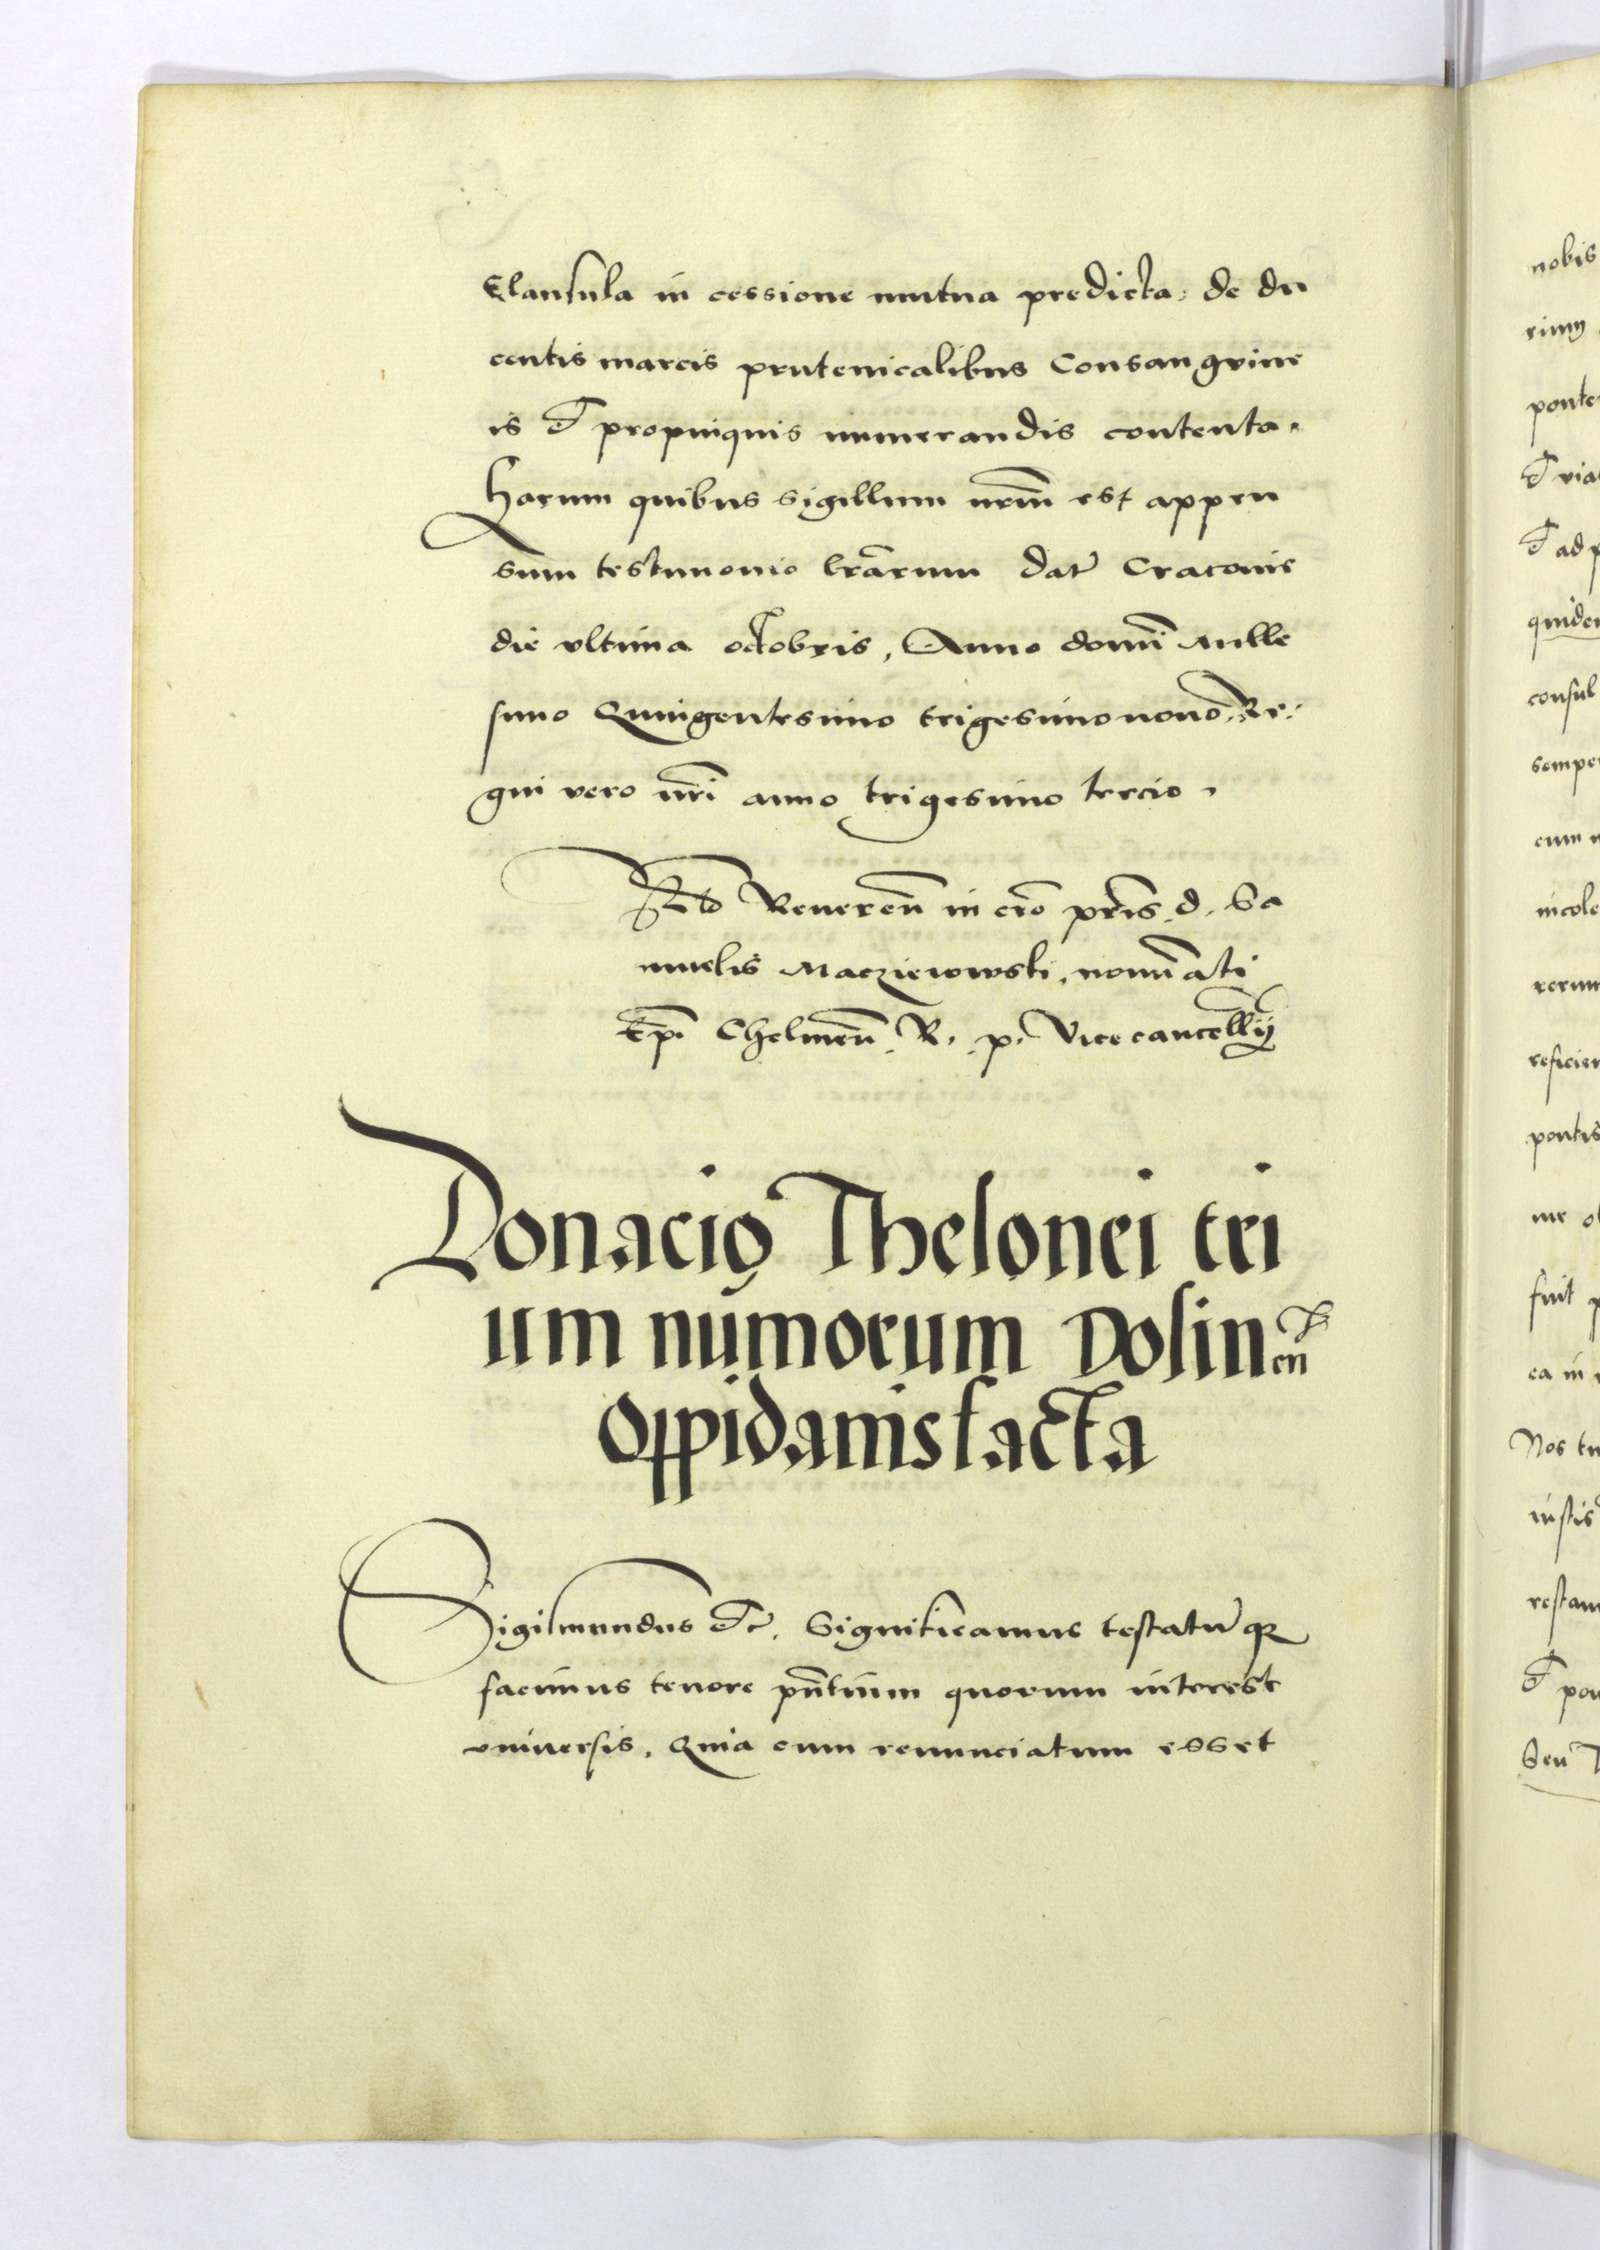 Clausula in cessione mutua predicta, de du
centis marcis prutenicalibus Consangvine
is et propinquis numerandis contenta.
harum quibus sigillum nrm̄ est appen
sum testimonio lrārum dat Cracovie
die ultima octobris, Anno domi Mille
simo Quingentesimo trigesimonono. Re:
gni vero nri anno trigesimo tercio,
Reveren in cro pris d. Sa
muelis Macziewowski, nominati
Epi Chelmen R. p. Vicecancellij
Donacio Thelonei tri
um numorum Dolinen
oppidanis facta
Sigismundus etc. Significamus testatumque
facimus tenore pntium quorum interest
universis, Quia cum renunciatum esset
nobis
ponte
et via
et ad p
quiden
consul
semper
cum
incole
rerum
reficien
pontis
me
fuit
ea in
Nos
iustis
restau
et pon
Seu